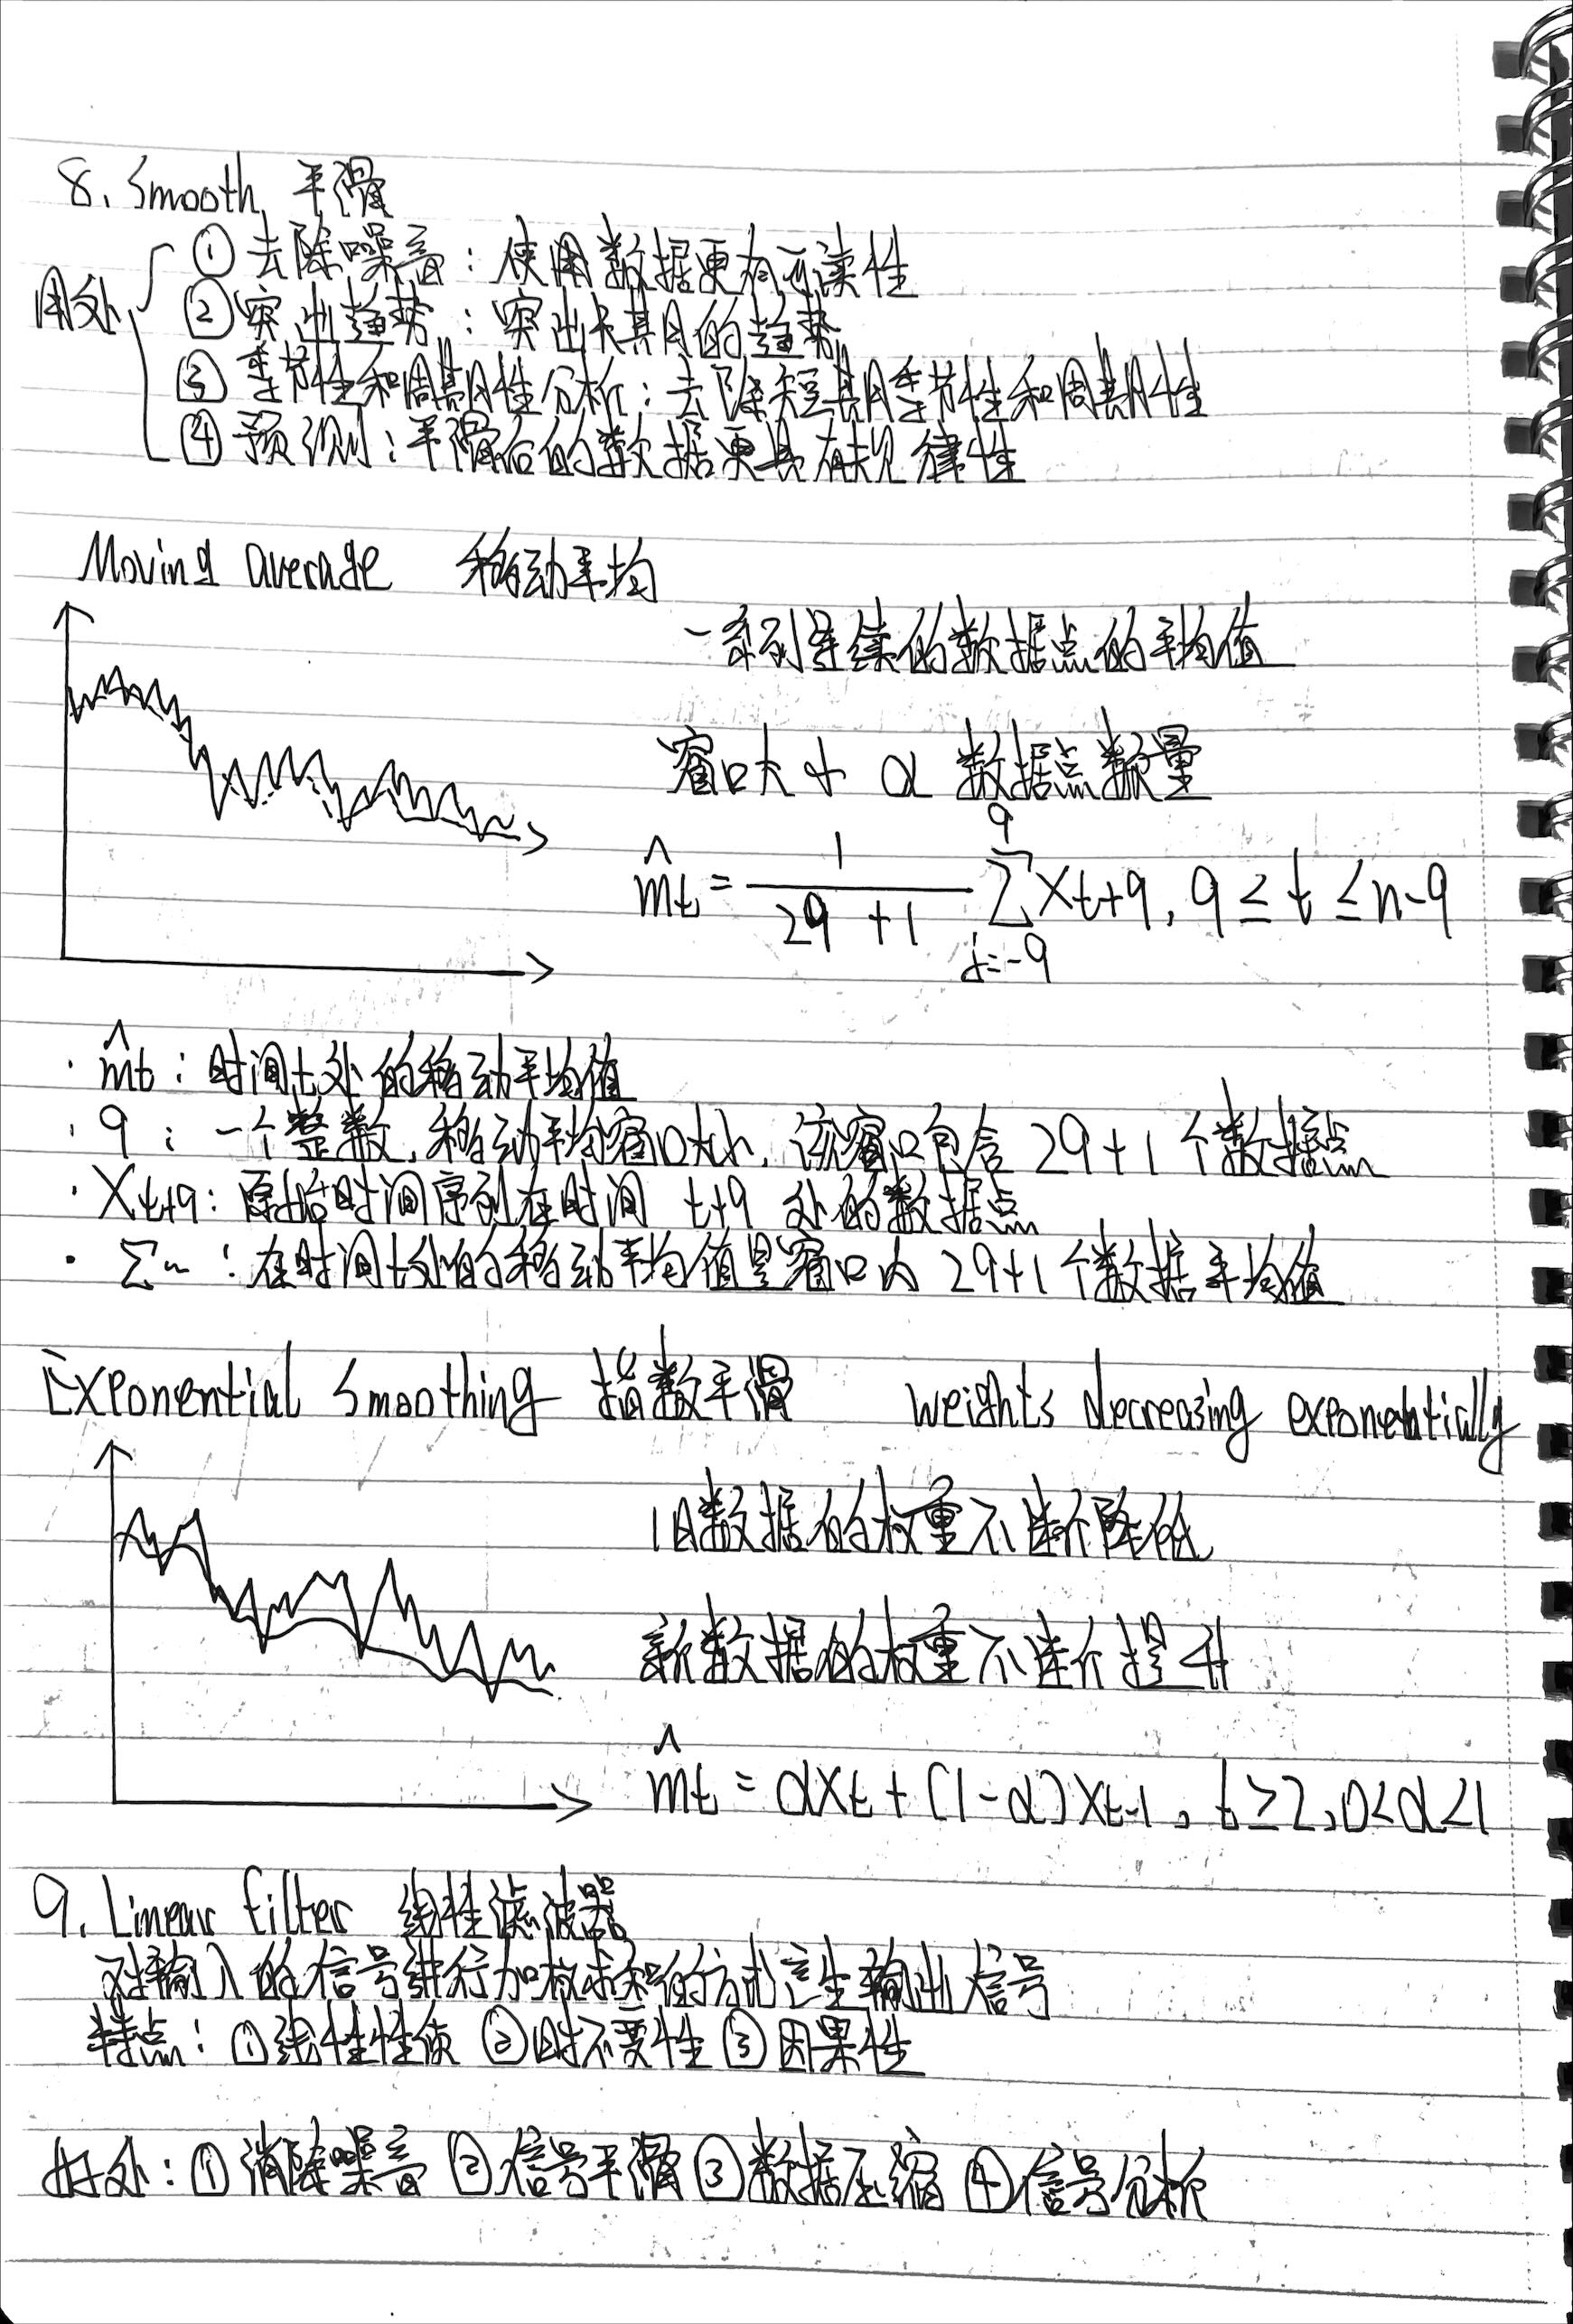 8. Smooth 平滑
用处
① 去除噪音：使用数据更有可读性
② 突出趋势：突出长期的趋势
③ 季节性和周期性分析：去除短期季节性和周期性
④ 预测：平滑后的数据更具有规律性
Moving average 移动平均
一系列连续的数据点的平均值
窗口大小 α 数据点数量
m̂t = 1/(2q+1) Σ_{j=-q}^{q} Xt+q, q ≤ t ≤ n-q
· m̂t：时间t处的移动平均值
· q：一个整数，移动平均窗口大小，该窗口包含 2q+1 个数据点
· Xt+q：原始时间序列在时间 t+q 处的数据点
· Σ~：在时间t处的移动平均值是窗口内 2q+1 个数据平均值
Exponential Smoothing 指数平滑 weights decreasing exponentially
旧数据的权重不断降低
新数据的权重不断提升
m̂t = αXt + (1-α)Xt-1, t≥2, 0<α<1
9. Linear filter 线性滤波器
对输入的信号进行加权求和的方式产生输出信号
特点：①线性性质 ②时不变性 ③因果性
好处：①消除噪音 ②信号平滑 ③数据压缩 ④信号分析